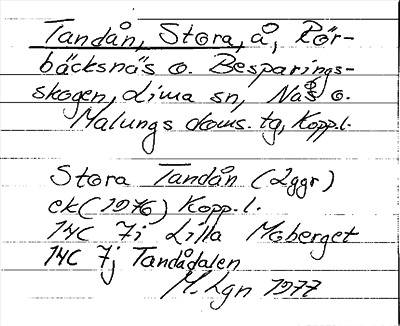 Tandån, Stora, å, Rör-
bäcksnäs o. Besparings-
skogen, Lima sn, Nås o.
Malungs doms. tg, Kopp.l.
Stora Tandån (2ggr)
ek (1976) Kopp.l.
14C 7i Lilla Moberget
14C 7j Tandådalen
M. Lgn 1977